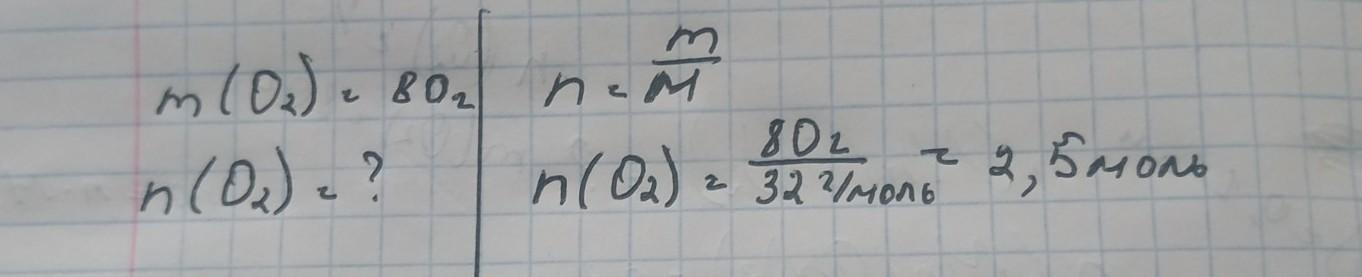 m(O₂) = 80г
n(O₂) = ?
n = m/M
n(O₂) = 80г/32 г/моль = 2,5 моль